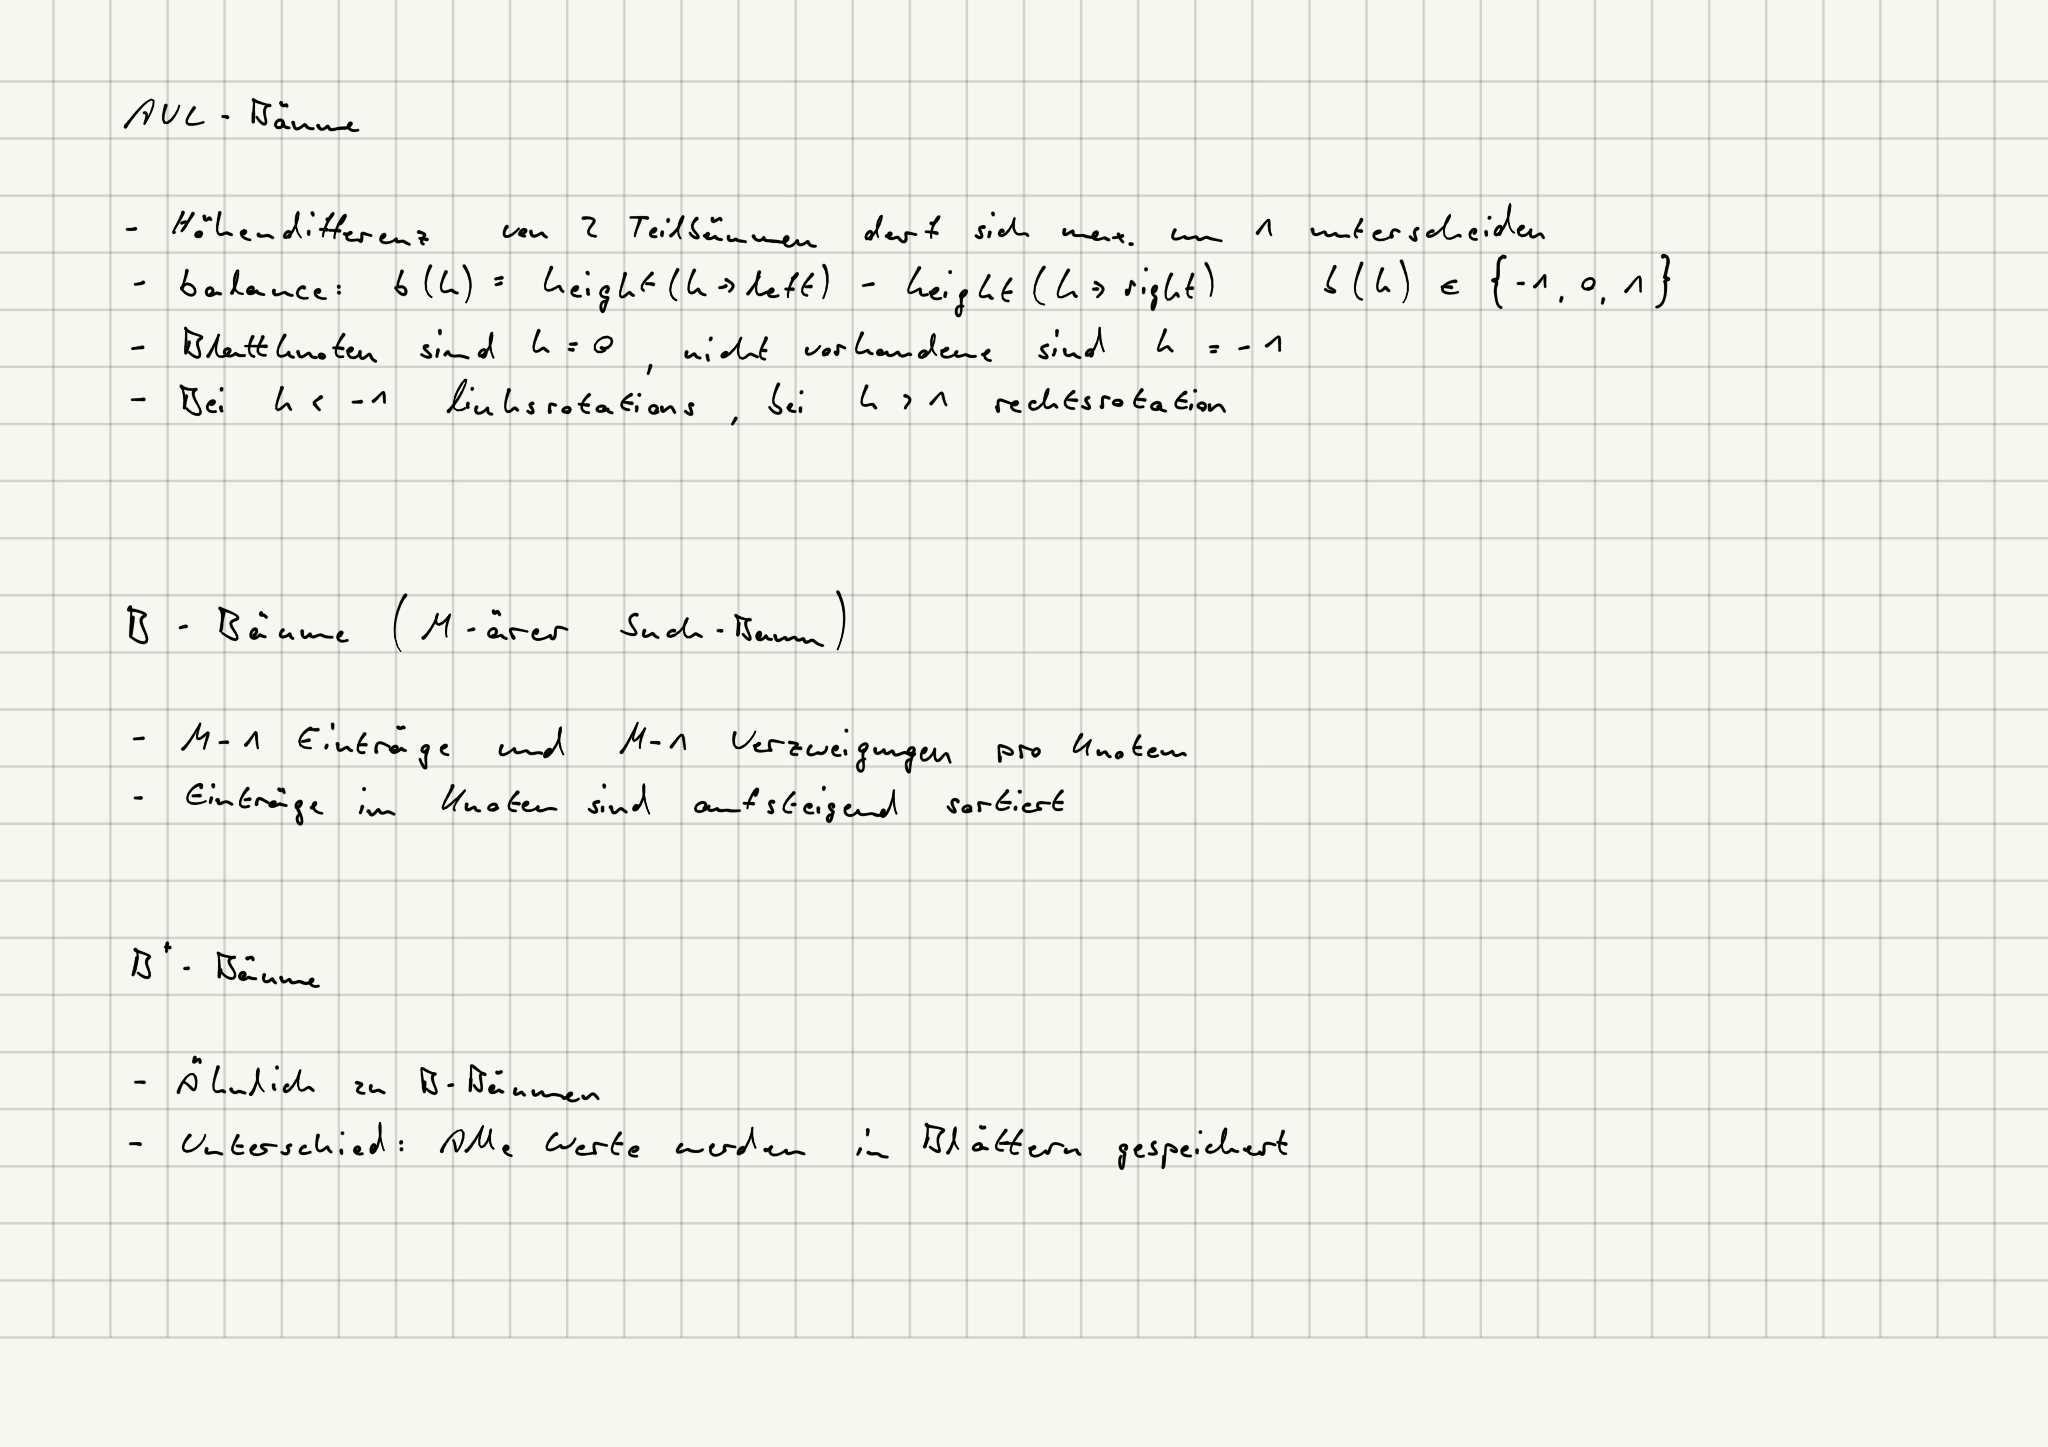 AVL - Bäume
- Höhendifferenz von 2 Teilbäumen darf sich max. um 1 unterscheiden
- balance: b(k) = height(k→left) - height(k→right) b(k) ∈ {-1, 0, 1}
- Blattknoten sind h = 0, nicht vorhandene sind h = -1
- Bei h < -1 linksrotations, bei h > 1 rechtsrotation
B - Bäume (M-ärer Such-Baum)
- M-1 Einträge und M-1 Verzweigungen pro Knoten
- Einträge im Knoten sind aufsteigend sortiert
B⁺ - Bäume
- Ähnlich zu B-Bäumen
- Unterschied: Alle Werte werden in Blättern gespeichert